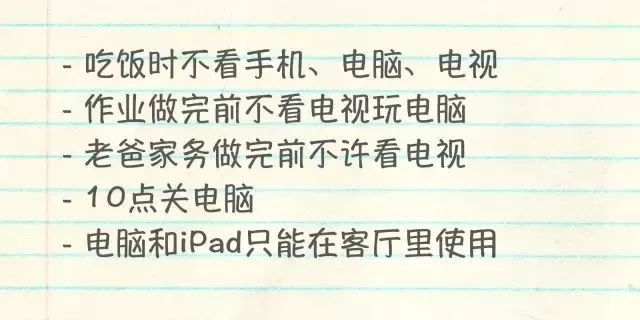 - 吃饭时不看手机、电脑、电视
- 作业做完前不看电视玩电脑
- 老爸家务做完前不许看电视
- 10点关电脑
- 电脑和iPad只能在客厅里使用